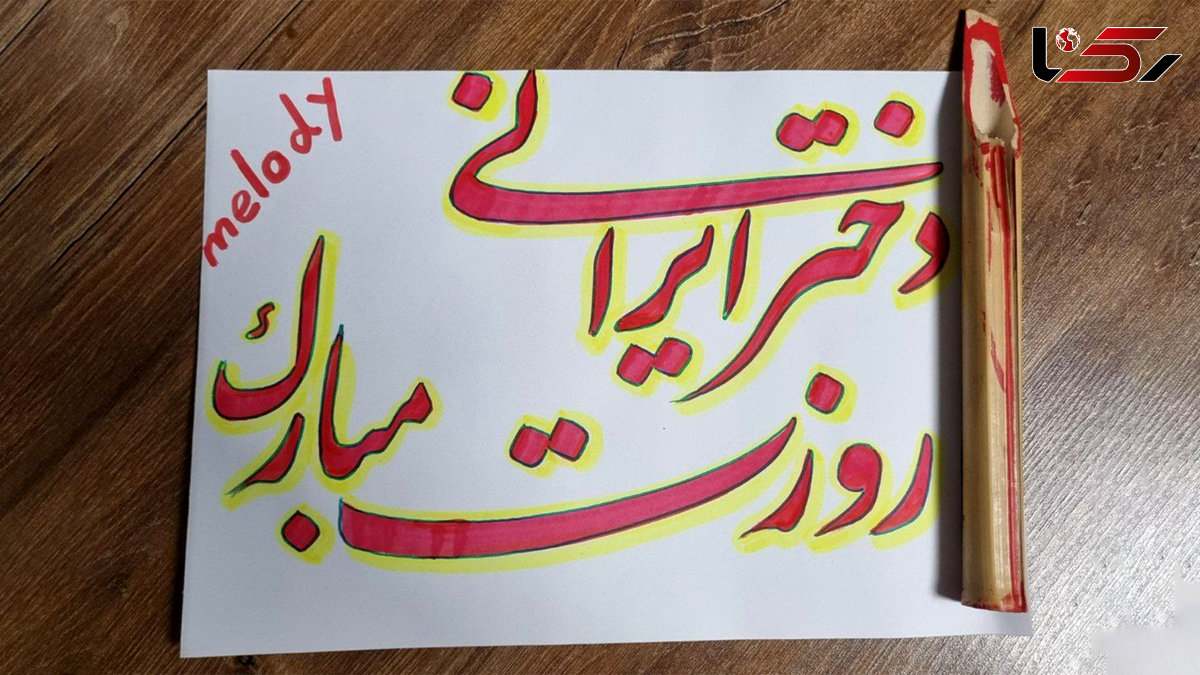 رکنا
melody
دختر ایرانی
روزت مبارک